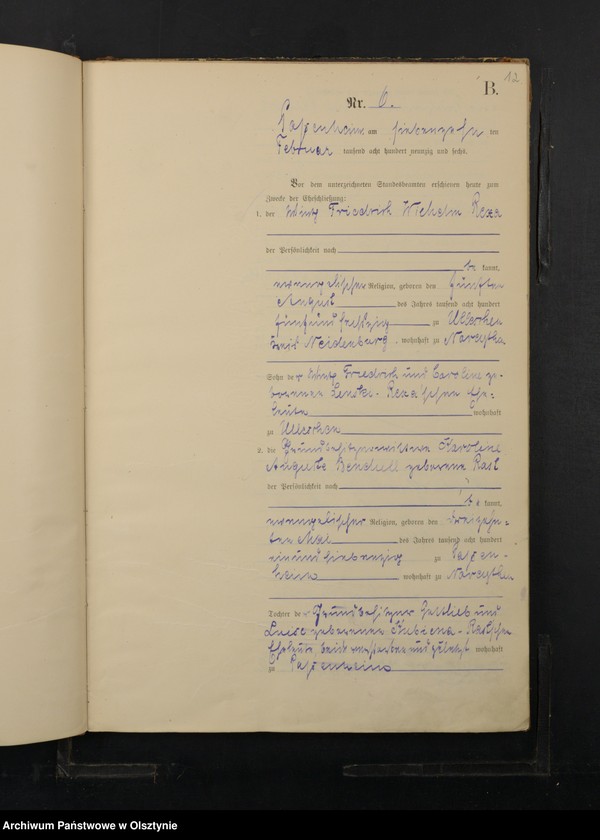 12
B.
Nr. 6.
Passenheim am siebenzehnten
Februar tausend acht hundert neunzig und sechs.
Vor dem unterzeichneten Standesbeamten erschienen heute zum
Zwecke der Eheschließung:
1. der Friedrich Wilhelm Rexa
der Persönlichkeit nach
be kannt,
evangelischer Religion, geboren den fünften
August des Jahres tausend acht hundert
fünfundsechzig zu
Kreis Neidenburg, wohnhaft zu Narajthen
Sohn der Friedrich und Caroline ge-
borenen Rexa'schen Ehe-
leute wohnhaft
zu
2. die Grundbesitzerwittwe Karoline
Auguste geborene Rast
der Persönlichkeit nach
be kannt,
evangelischer Religion, geboren den dreizehn-
ten Mai des Jahres tausend acht hundert
einundsiebenzig zu Passen-
heim wohnhaft zu Narajthen
Tochter der Grundbesitzer Gottlieb und
Luise geborenen Rast'schen
Eheleute, beide verstorben und zuletzt wohnhaft
zu Passenheim
Archiwum Państwowe w Olsztynie